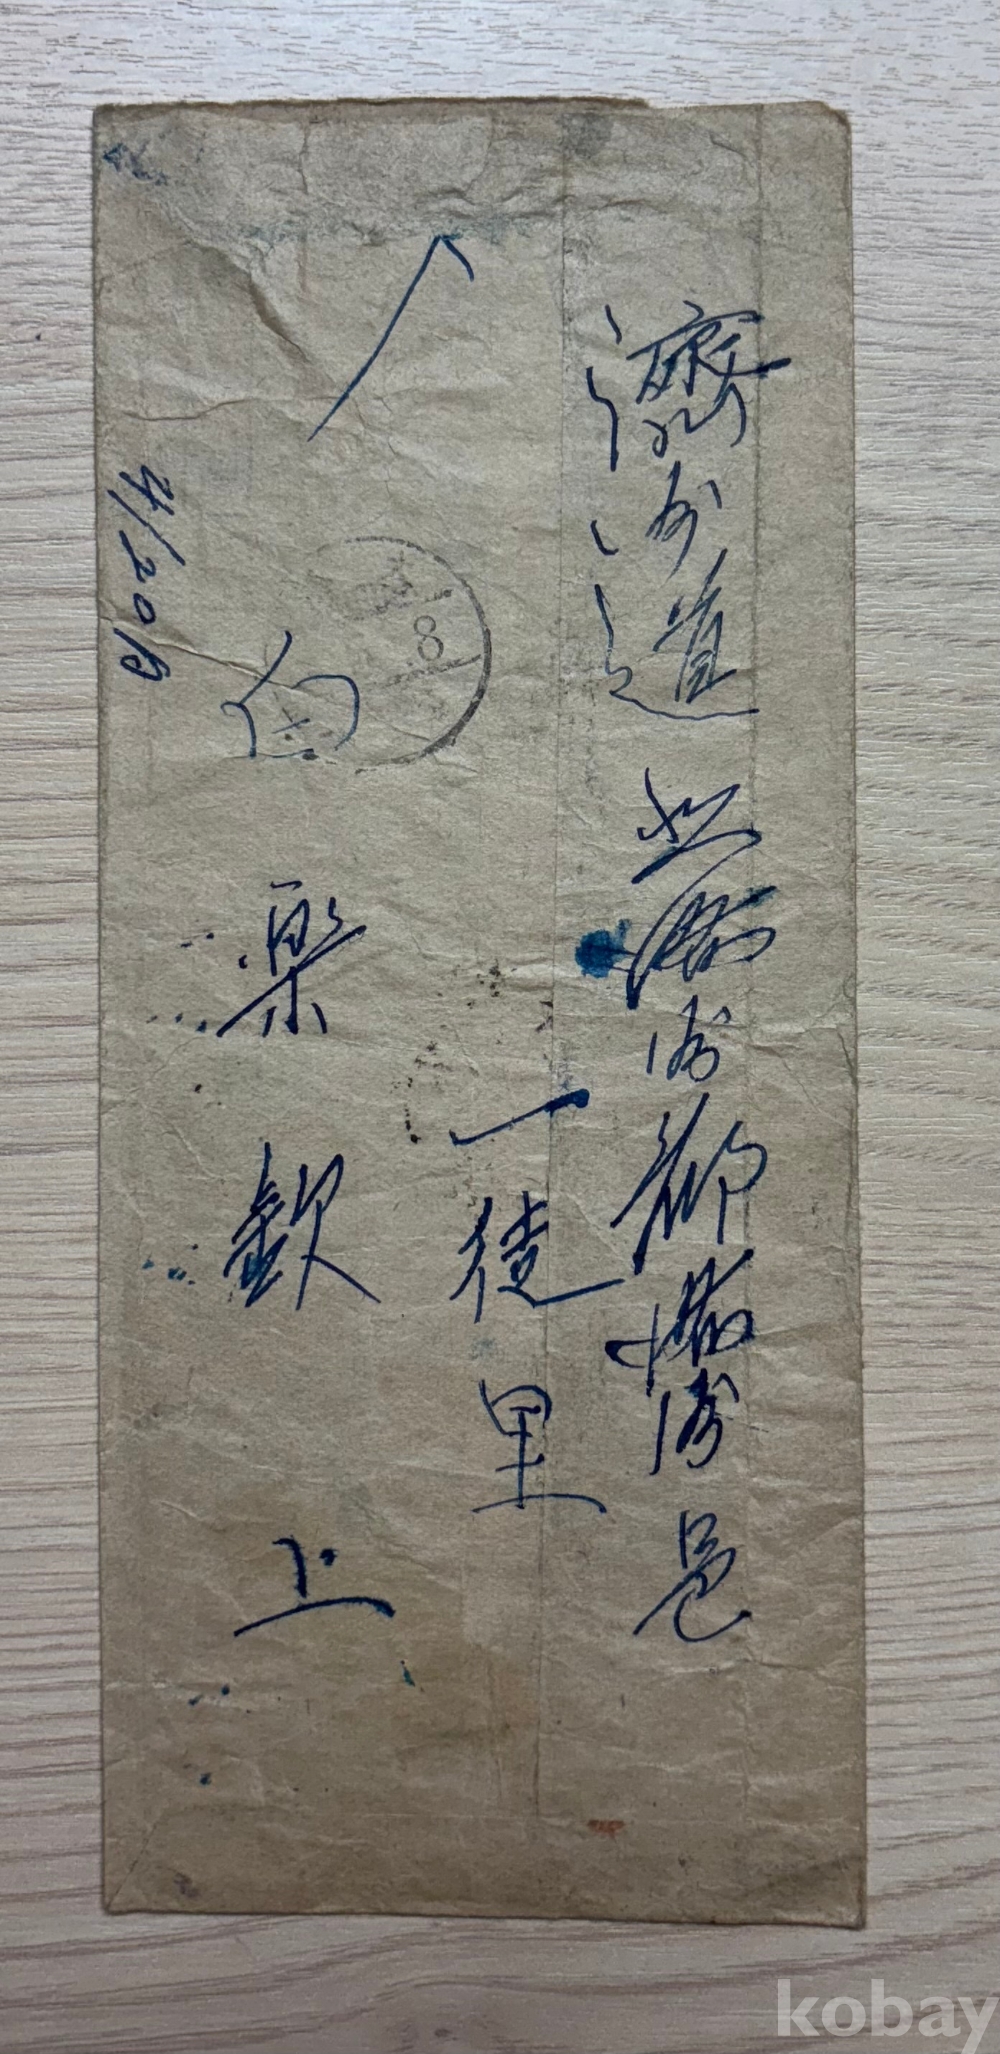 濟州道 北濟州郡 濟州邑
一徒里
白 樂 欽 上
4/20日
8
kobay